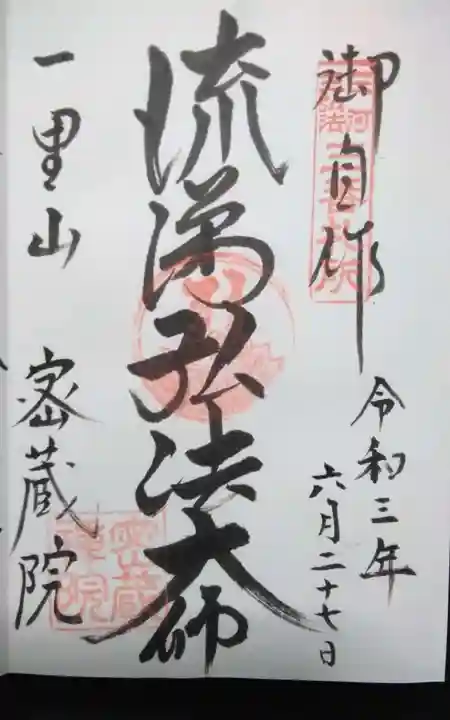 御自作
令和三年
六月二十七日
流涕弘法大師
一里山
密蔵院
密蔵
禅院